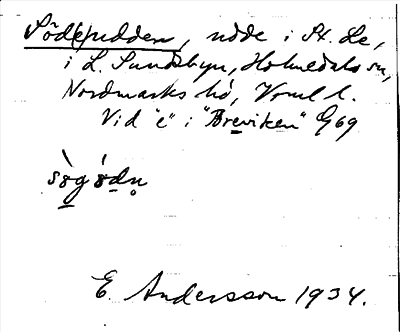 Söd(e)udden, udde i St. Le,
i L. Sundsbyn, Holmedals sn,
Nordmarks hd, Vrml l.
Vid "e" i "Breviken" G69
E. Andersson 1934.